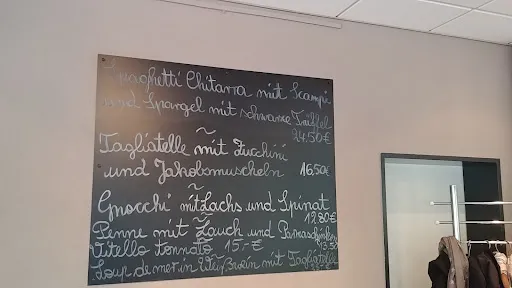 Spaghetti Chitarra mit Scampi
und Spargel mit schwarze Trüffel
24.50€
~
Tagliatelle mit Zucchini
und Jakobsmuscheln 16.50€
~
Gnocchi mit Lachs und Spinat
12.80€
~
Penne mit Lauch und
13.50
Vitello tonnato 15.-€
~
Loup de mer in Weißwein mit Tagliatelle